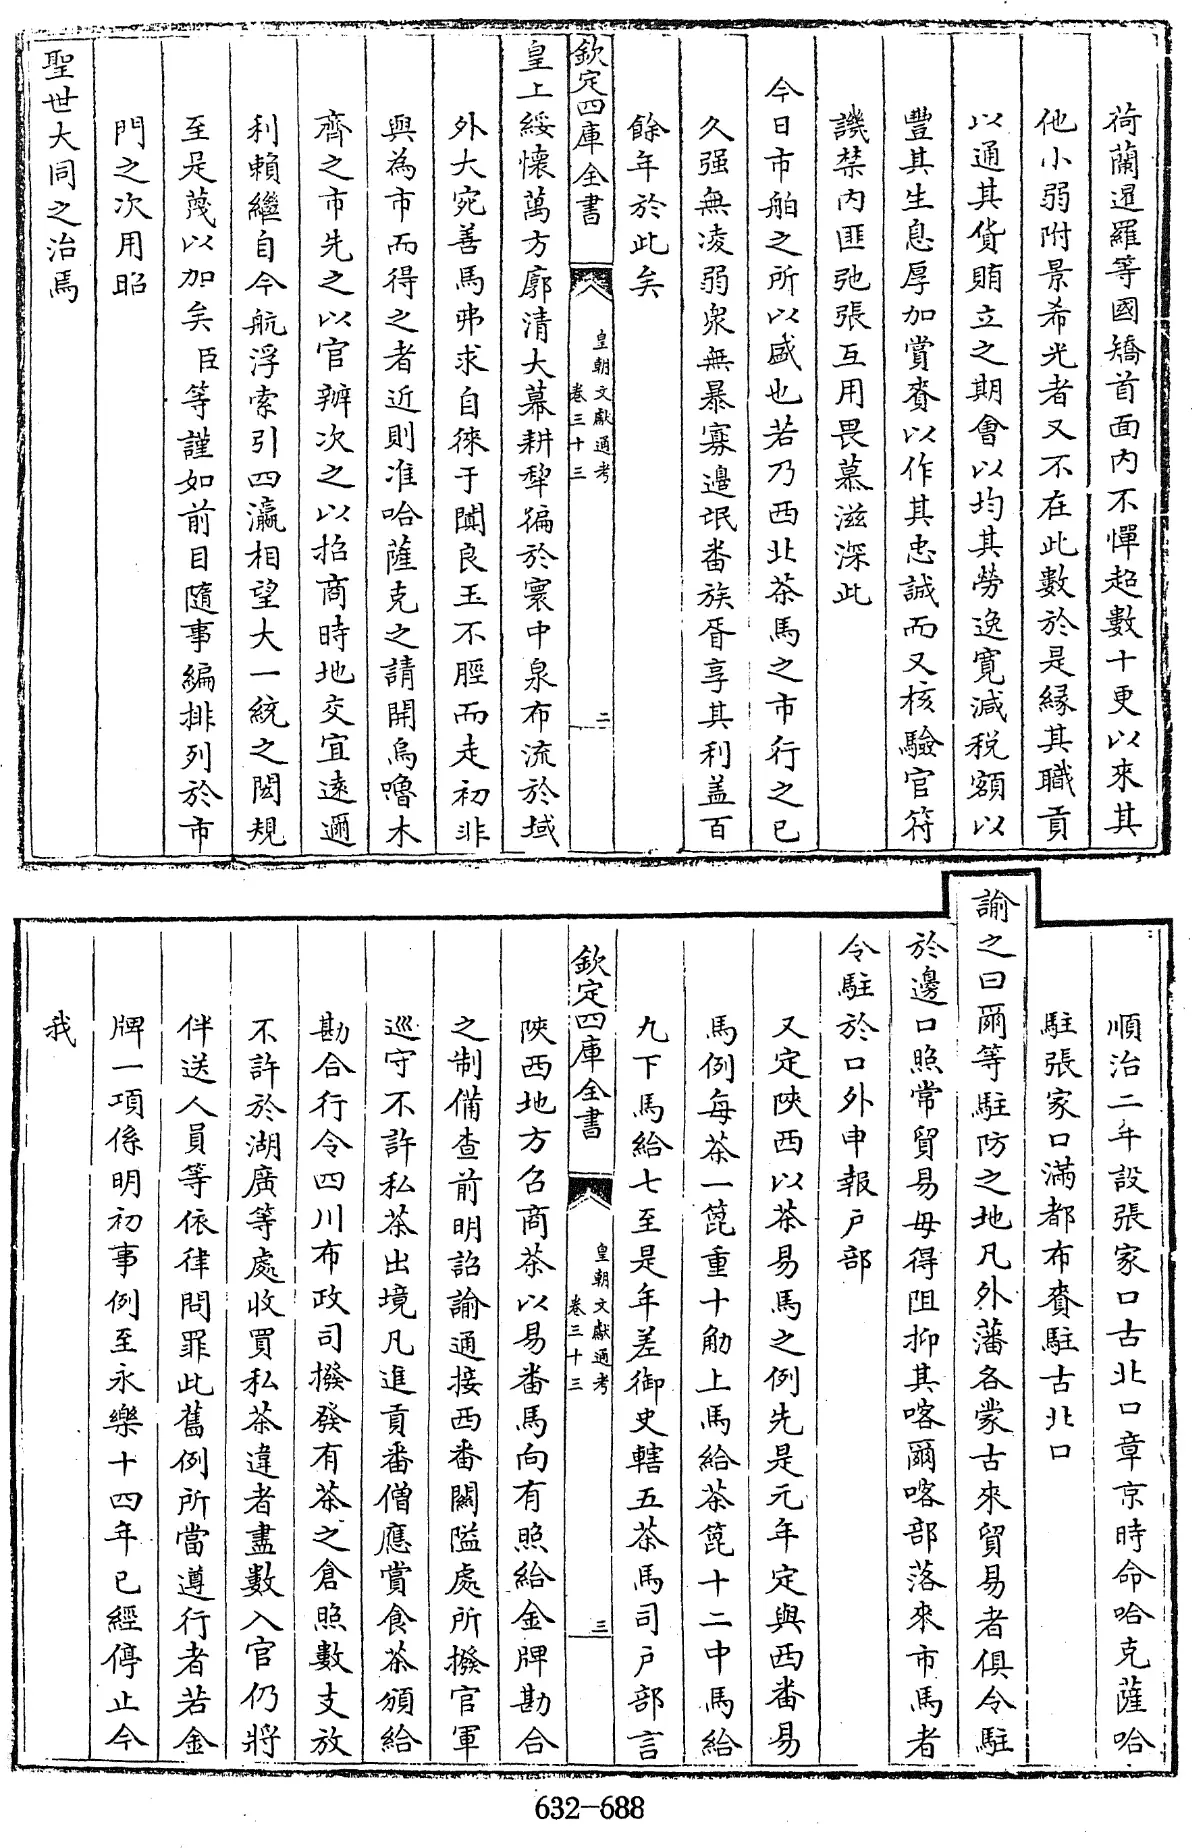 荷蘭暹羅等國矯首面内不憚超數十更以來其
他小弱附景希光者又不在此數於是縁其職貢
以通其貨賄立之期會以均其勞逸寛減税額以
豐其生息厚加賞賚以作其忠誠而又核驗官符
譏禁内匪弛張互用畏慕滋深此
今日市舶之所以盛也若乃西北茶馬之市行之已
久强無凌弱衆無暴寡邉氓番族胥享其利盖百
餘年於此矣
欽定四庫全書
皇朝文獻通考
卷三十三
二
皇上綏懷萬方廓清大幕耕犂徧於寰中泉布流於域
外大宛善馬弗求自徠于闐良玉不脛而走初非
與為市而得之者近則准哈薩克之請開烏嚕木
齊之市先之以官辦次之以招商時地交宜逺邇
利賴繼自今航浮索引四瀛相望大一統之閎規
至是蔑以加矣臣等謹如前目隨事編排列於市
門之次用昭
聖世大同之治焉
順治二年設張家口古北口章京時命哈克薩哈
駐張家口滿都布賚駐古北口
諭之曰爾等駐防之地凡外藩各蒙古來貿易者俱令駐
於邊口照常貿易毋得阻抑其喀爾喀部落來市馬者
令駐於口外申報户部
又定陝西以茶易馬之例先是元年定與西番易
馬例每茶一篦重十觔上馬給茶篦十二中馬給
九下馬給七至是年差御史轄五茶馬司户部言
欽定四庫全書
皇朝文獻通考
卷三十三
三
陝西地方召商茶以易番馬向有照給金牌勘合
之制備查前明詔諭通接西番關隘處所撥官軍
巡守不許私茶出境凡進貢番僧應賞食茶頒給
勘合行令四川布政司撥發有茶之倉照數支放
不許於湖廣等處收買私茶違者盡數入官仍將
伴送人員等依律問罪此舊例所當遵行者若金
牌一項係明初事例至永樂十四年已經停止今
我
632-688